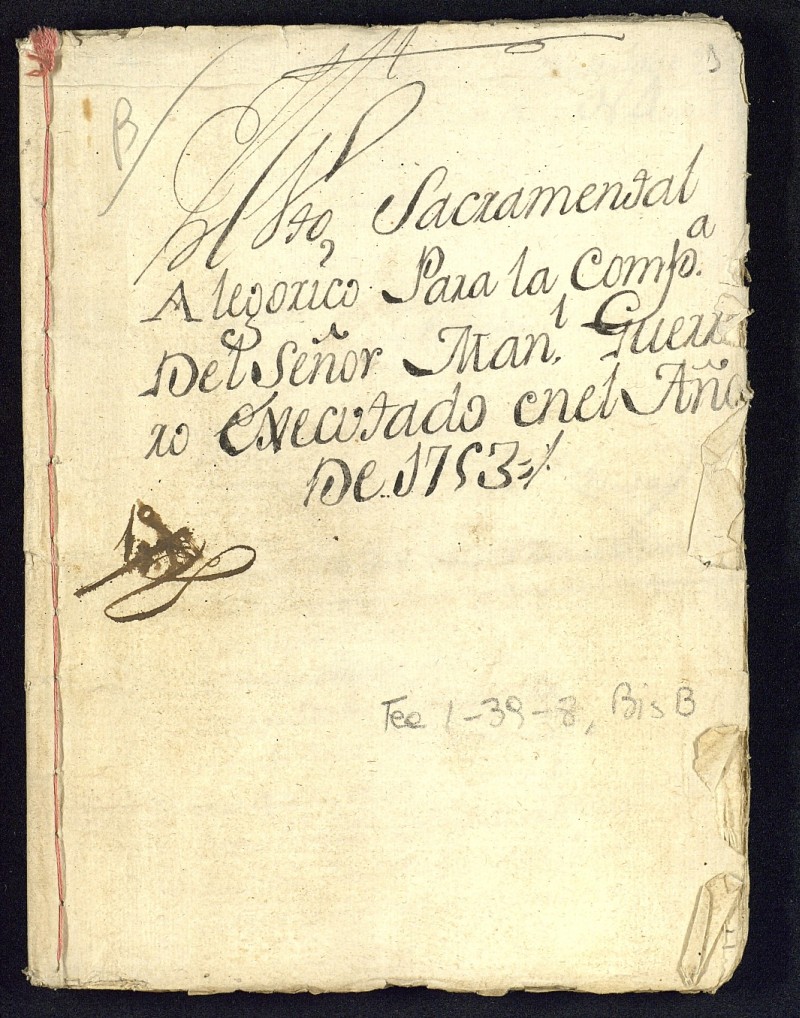 B
Auto Sacramental
Alegorico Para la Comp.a
Del Señor Man.l Guerre
ro Execvtado enel Año
De 1753=/.
Tea 1-39-8, Bis B